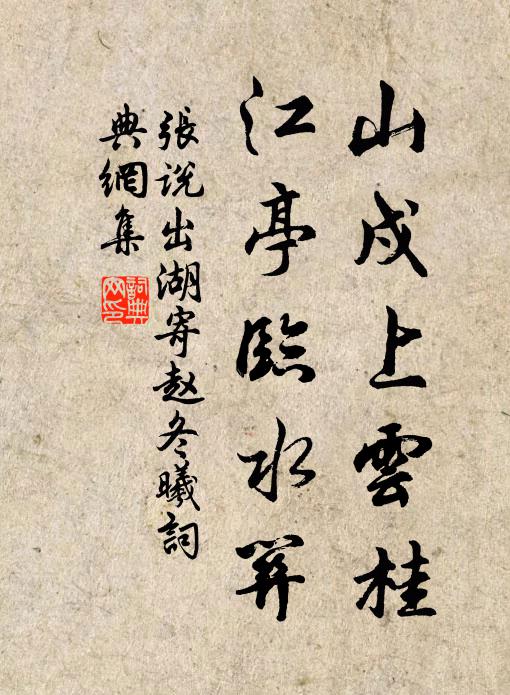 山戍上雲桂
江亭臨水
張说出湖寄赵冬曦詞
典網集
詞典
网印